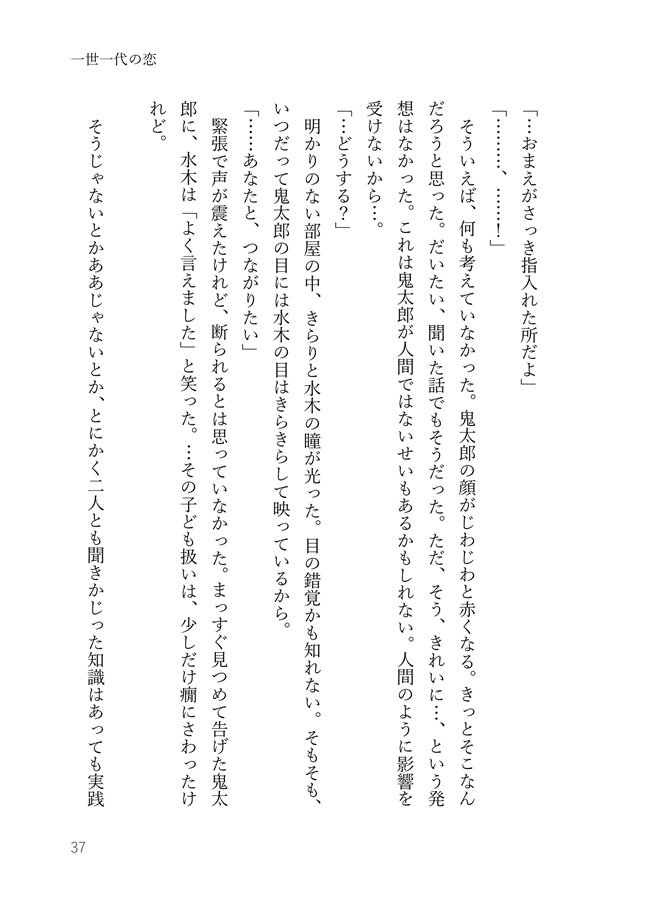 一世一代の恋
「…おまえがさっき指入れた所だよ」
「………、……！」
　そういえば、何も考えていなかった。鬼太郎の顔がじわじわと赤くなる。きっとそこなん
だろうと思った。だいたい、聞いた話でもそうだった。ただ、そう、きれいに…、という発
想はなかった。これは鬼太郎が人間ではないせいもあるかもしれない。人間のように影響を
受けないから…。
「…どうする？」
　明かりのない部屋の中、きらりと水木の瞳が光った。目の錯覚かも知れない。そもそも、
いつだって鬼太郎の目には水木の目はきらきらして映っているから。
「……あなたと、つながりたい」
　緊張で声が震えたけれど、断られるとは思っていなかった。まっすぐ見つめて告げた鬼太
郎に、水木は「よく言えました」と笑った。…その子ども扱いは、少しだけ癇にさわったけ
れど。
　そうじゃないとかああじゃないとか、とにかく二人とも聞きかじった知識はあっても実践
37